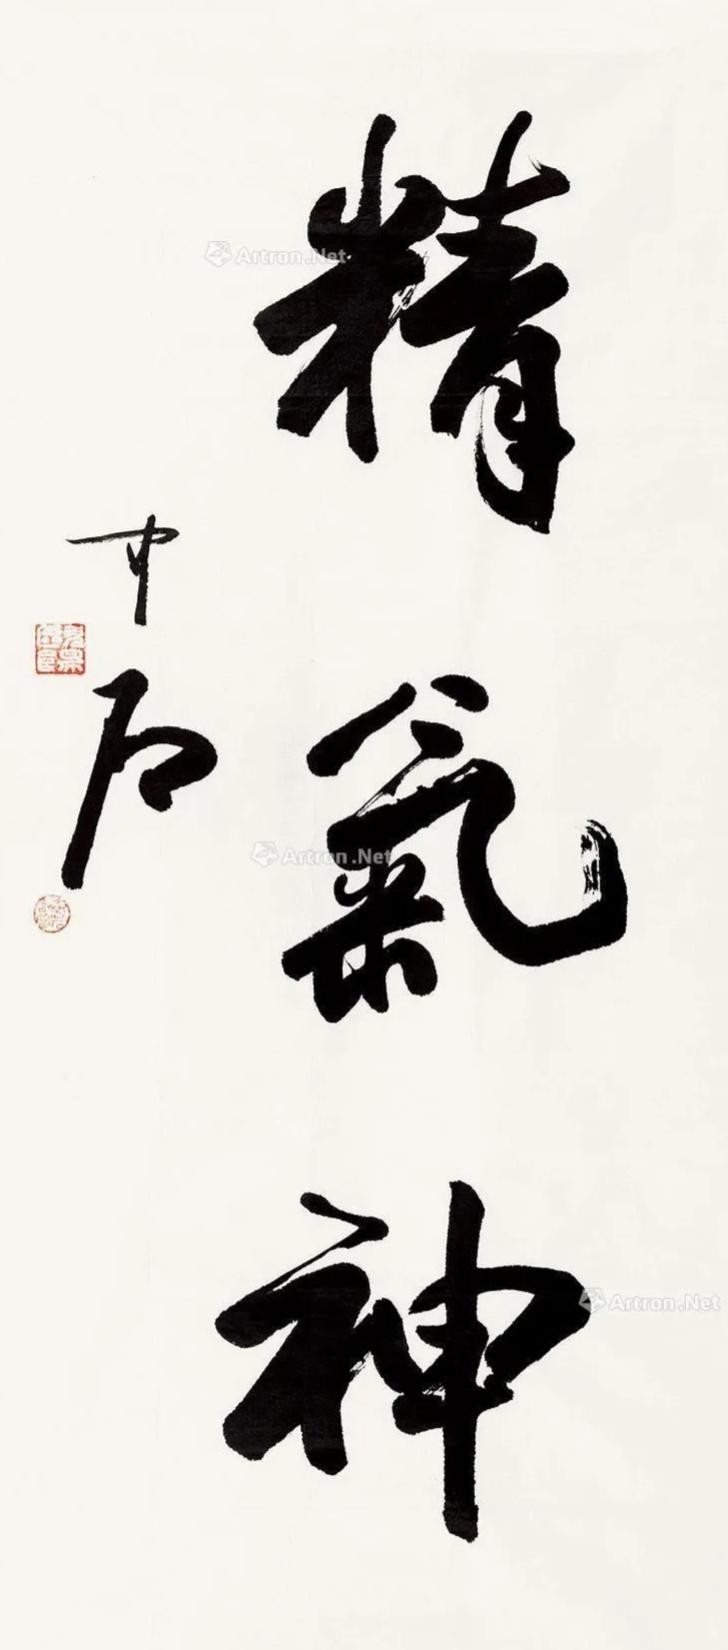 精氣神
中石
Artron.Net
Artron.Net
Artron.Net